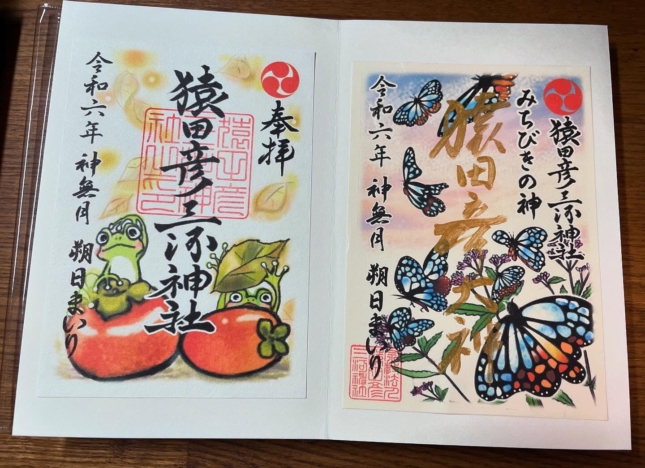 奉拝
猿田彦三河神社
令和六年 神無月 朔日まいり
猿田彦三河神社
みちびきの神
猿田彦大神
令和六年 神無月 朔日まいり